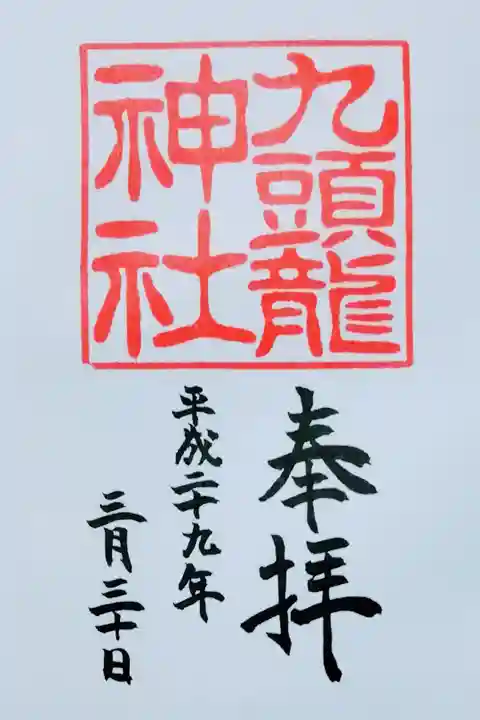 九頭龍
神社
奉拝
平成二十九年
三月三十日